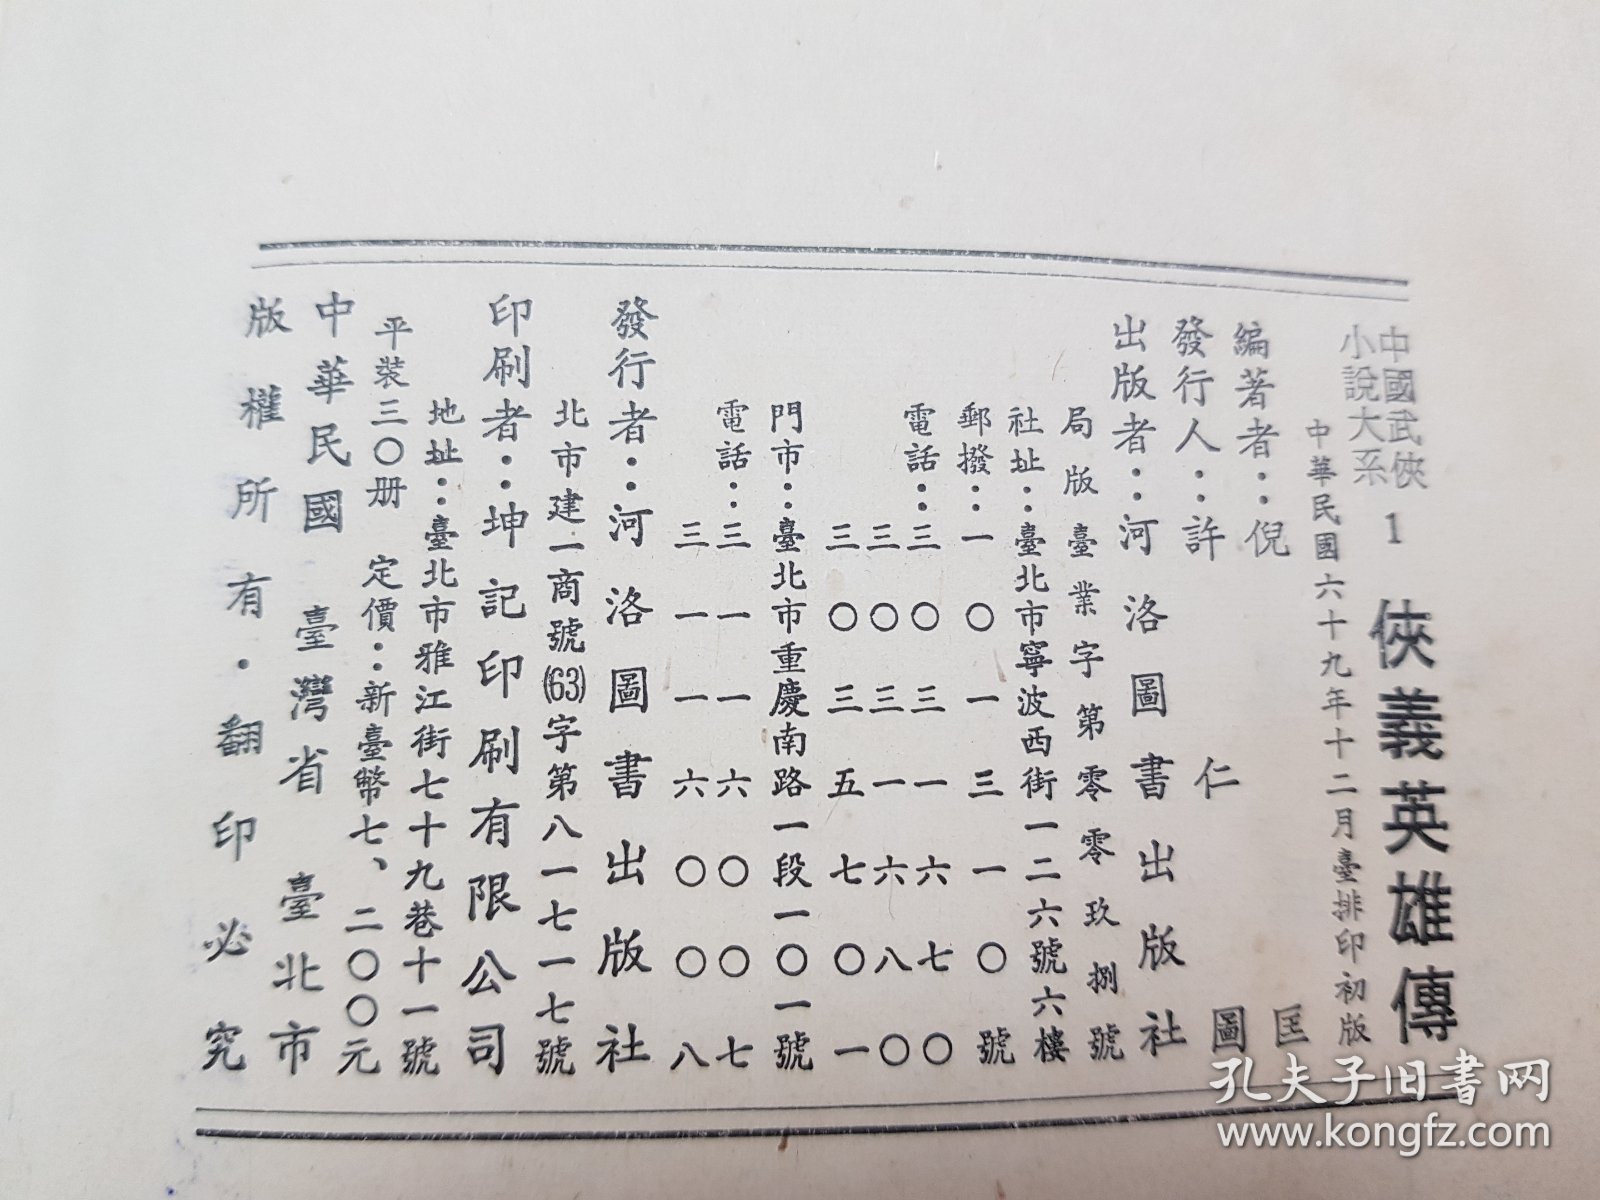 中國武俠
小說大系
1 俠義英雄傳
中華民國六十九年十二月臺排印初版
編著者：倪匡
發行人：許仁圖
出版者：河洛圖書出版社
局版臺業字第零零玖捌號
社址：臺北市寧波西街一二六號六樓
郵撥：一〇一三一〇號
電話：三〇三一六七〇
三〇三一六八〇
三〇三五七〇一
門市：臺北市重慶南路一段一〇一號
電話：三一一六〇〇七
三一一六〇〇八
發行者：河洛圖書出版社
北市建一商號(63)字第八一七一七號
印刷者：坤記印刷有限公司
地址：臺北市雅江街七十九巷十一號
平裝三〇册 定價：新臺幣七、二〇〇元
中華民國 臺灣省 臺北市
版權所有·翻印必究
孔夫子旧书网
www.kongfz.com